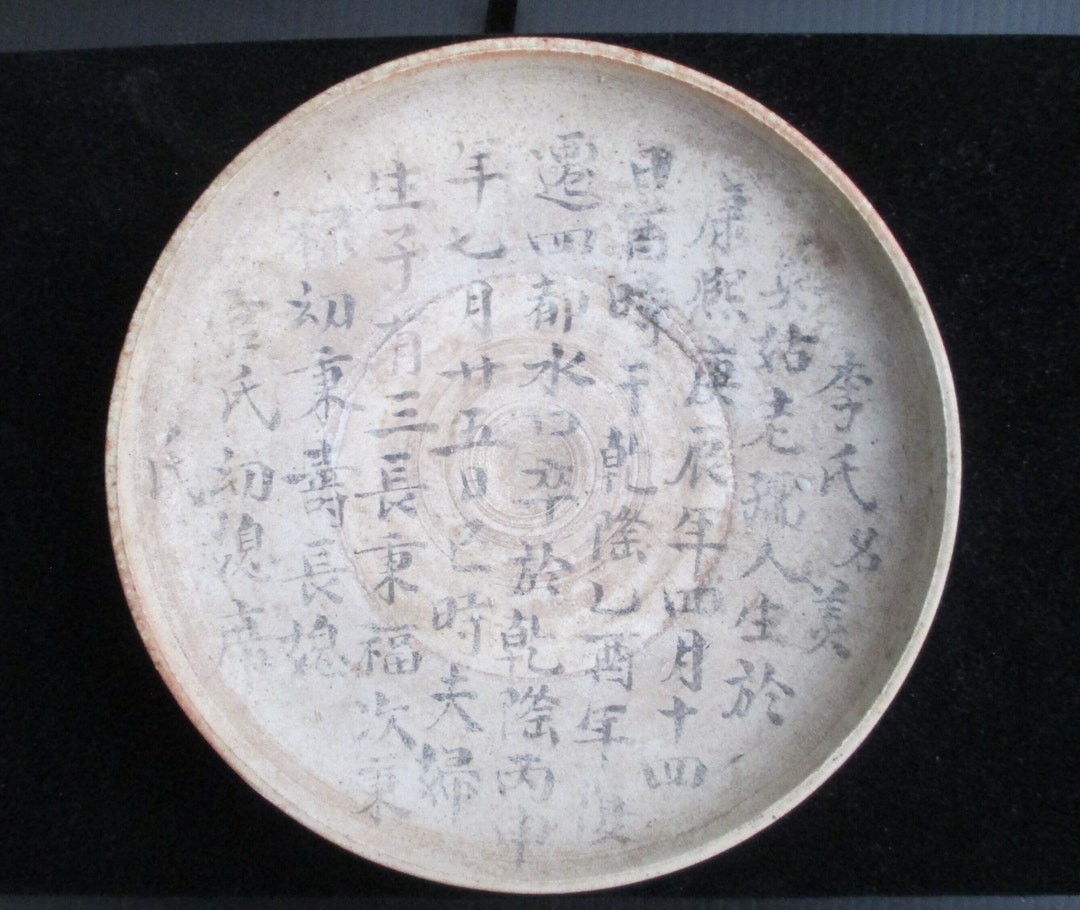 李氏名美
姑老孺人生於
康熙庚辰年四月十四
日酉時于乾隆乙酉年復
遷四都水口卒於乾隆丙申
年七月廿五日巳時夫婦
生子有三長秉福次秉
祿幼秉壽長媳
氏幼媳
氏